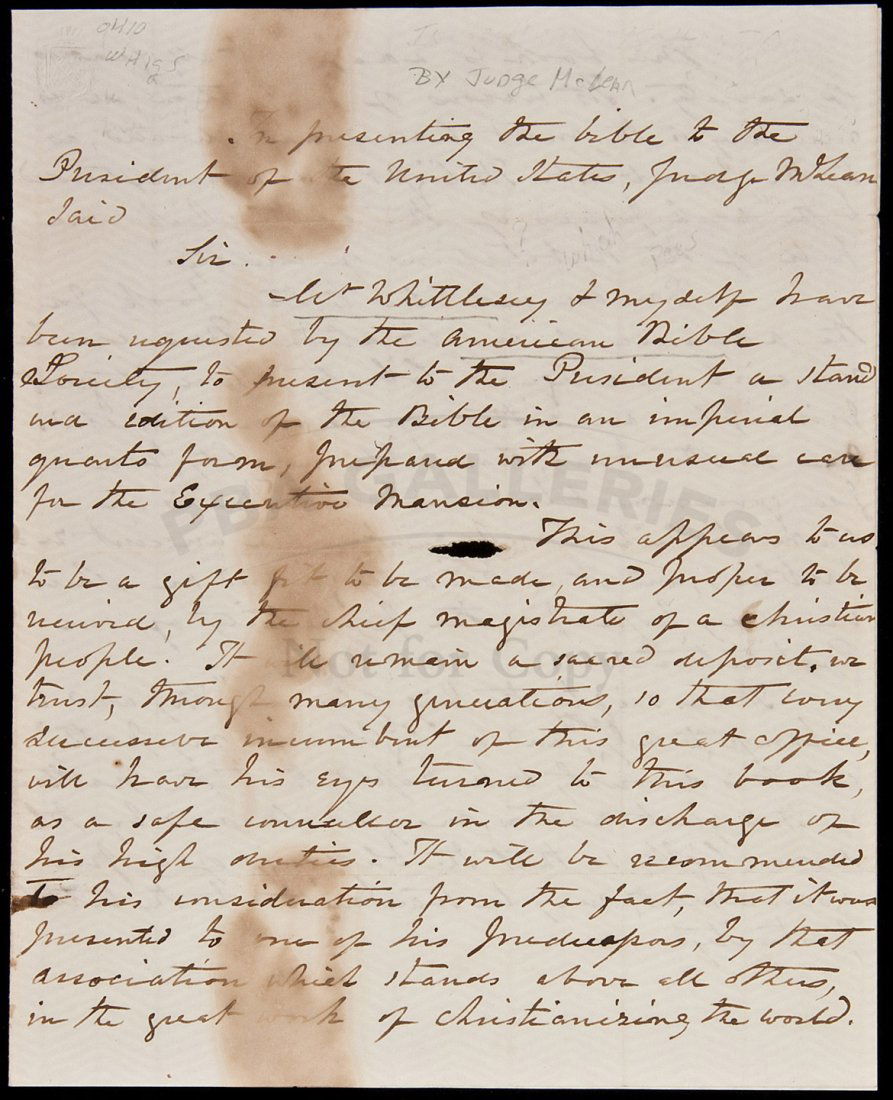 OHIO
WHIGS
BY Judge McLean
In presenting the bible to the
President of the United States, Judge McLean
said
Sir.
Mr Whittlesey & myself have
been requested by the American Bible
Society, to present to the President a stand
ard edition of the Bible in an imperial
quarto form, prepared with unusual care
for the Executive Mansion.
This appears to us
to be a gift fit to be made, and proper to be
received, by the chief magistrate of a christian
people. It will remain a sacred deposit, we
trust, through many generations, so that every
successive incumbent of this great office,
will have his eyes turned to this book,
as a safe counsellor in the discharge of
his high duties. It will be recommended
To his consideration from the fact, that it was
presented to one of his predecessors, by that
association which stands above all others,
in the great work of christianizing the world.
PBA GALLERIES
Not for Copy